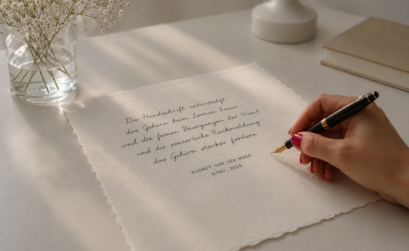 Die Handschrift unterstützt
das Gehirn beim Lernen besser,
weil die feinen Bewegungen der Hand
und die sensorische Rückmeldung
das Gehirn stärker fordern.
AUDREY VAN DER MEER
NTNU, 2024